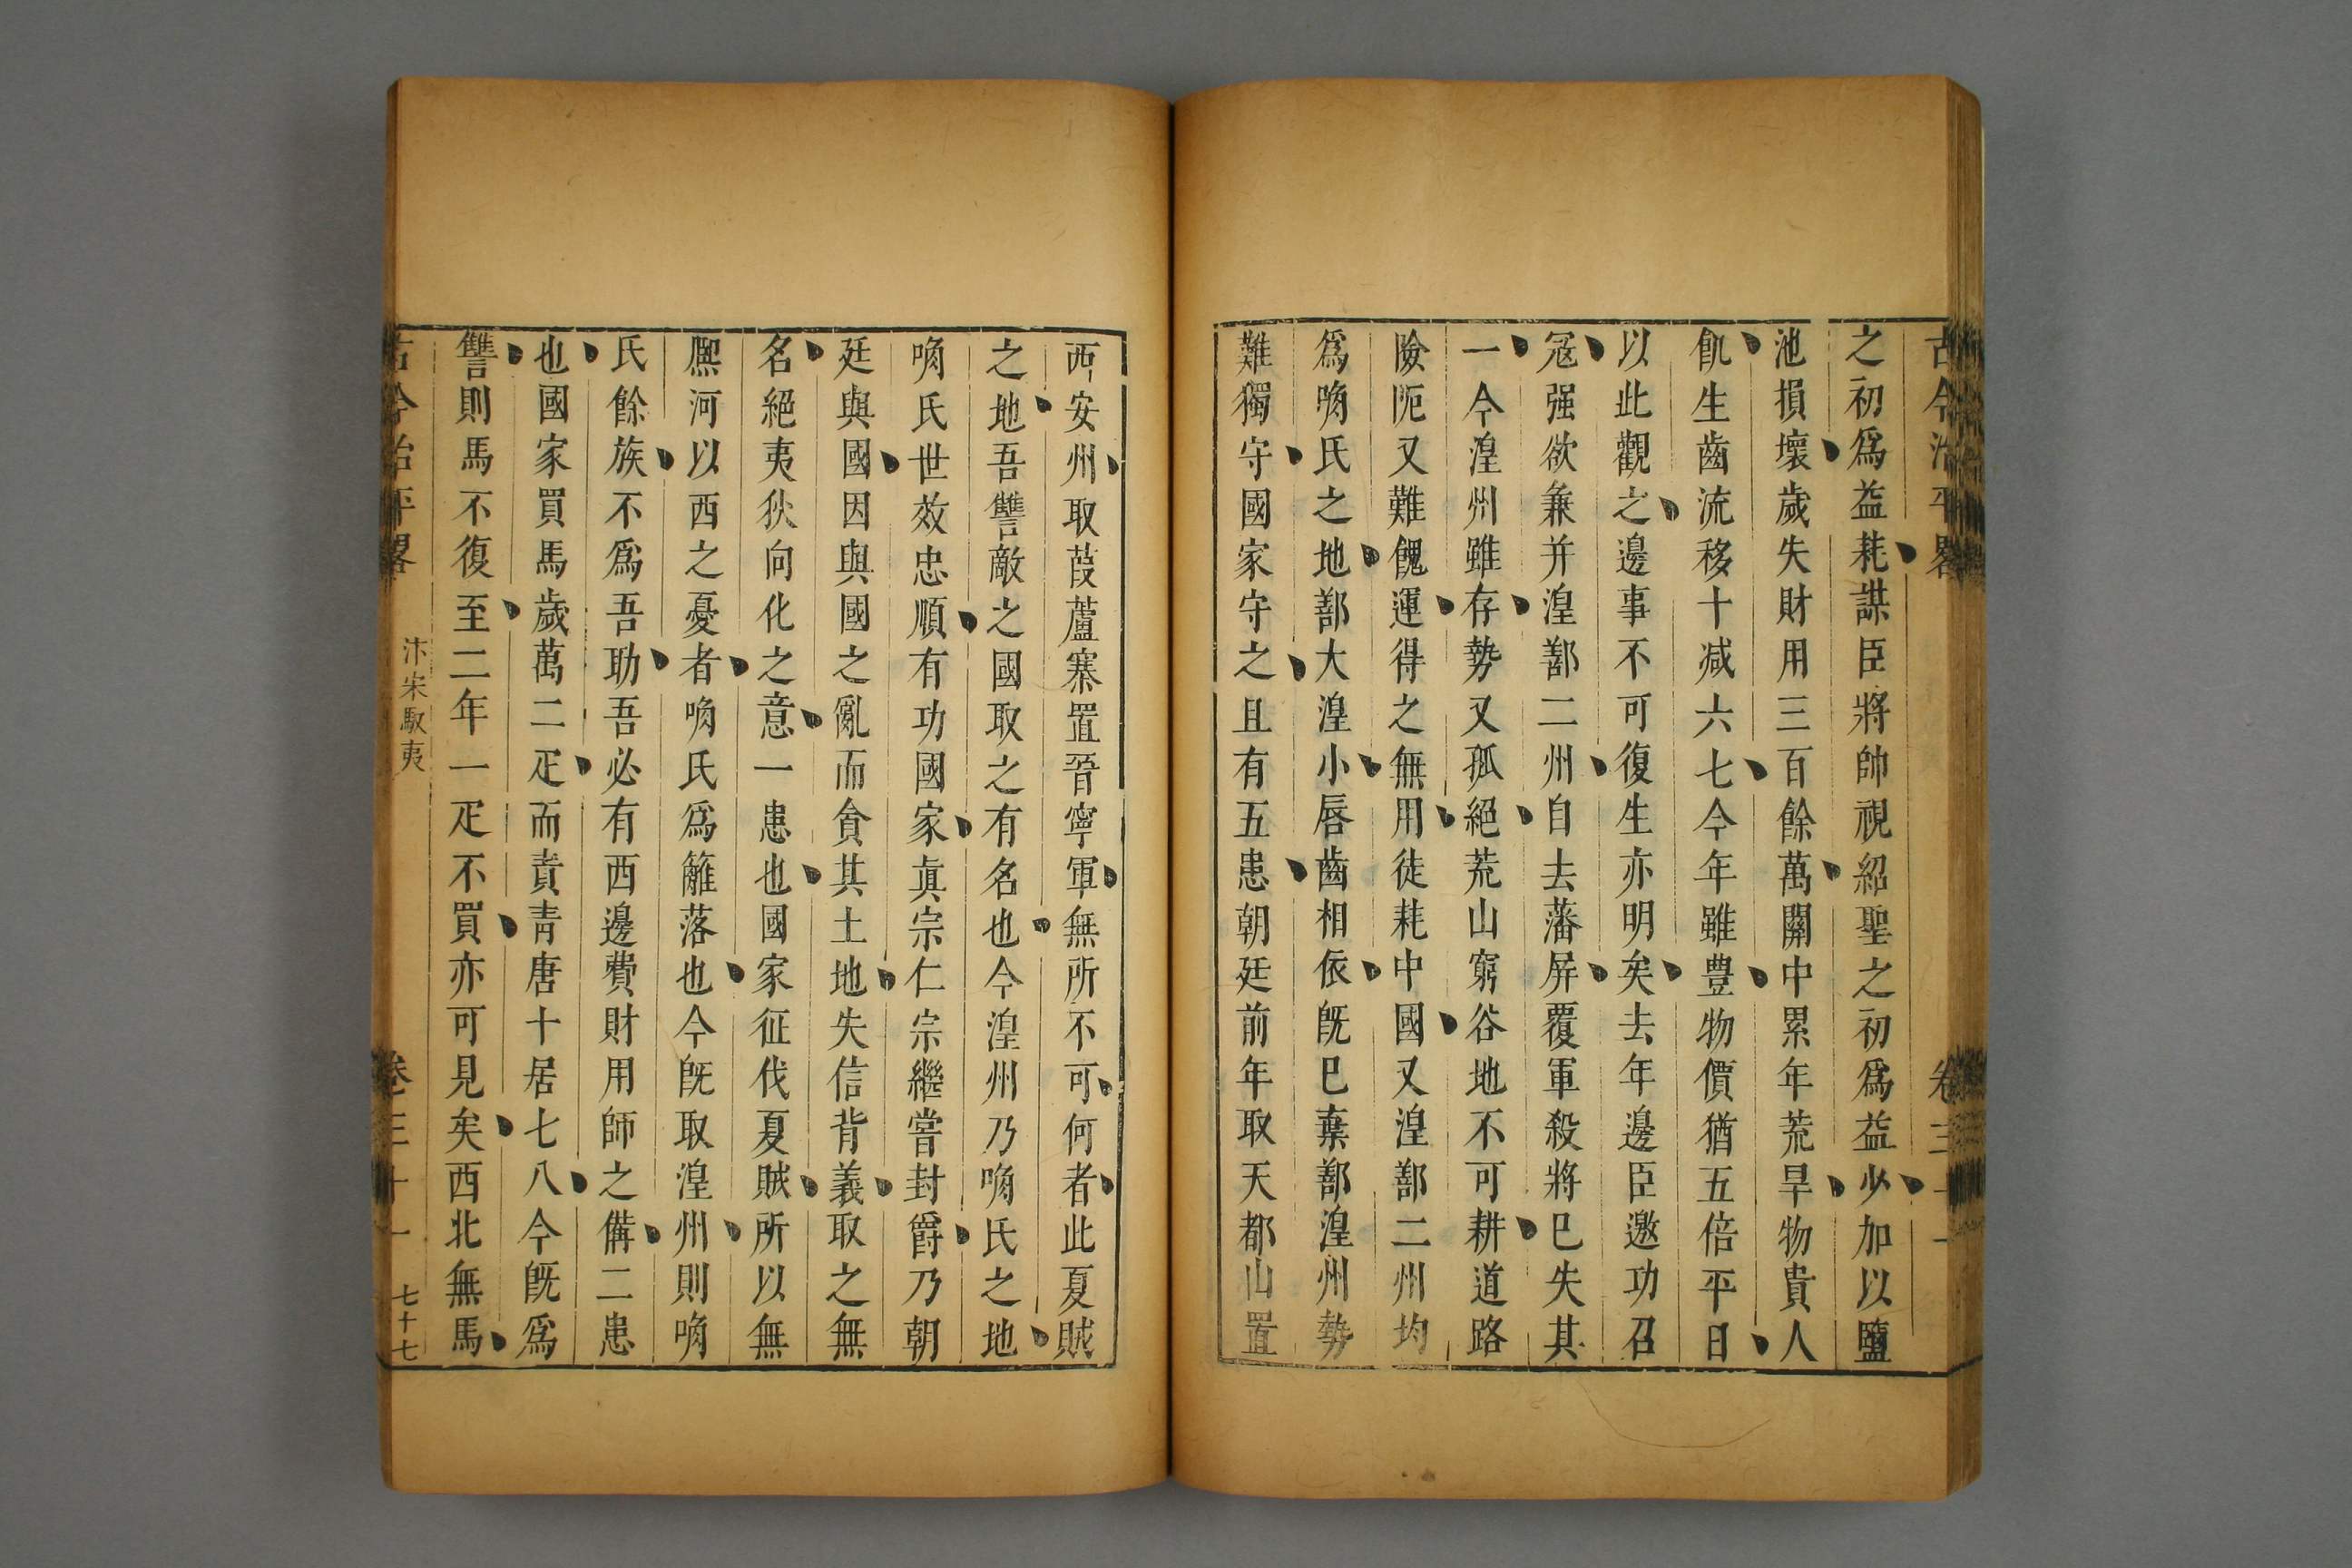 古今治平畧 卷三十一
之初爲益耗謀臣將帥視紹聖之初爲益少加以鹽
池損壞歲失財用三百餘萬關中累年荒旱物貴人
飢生齒流移十减六七今年雖豊物價猶五倍平日
以此觀之邊事不可復生亦明矣去年邊臣邀功召
冦强欲兼并湟鄯二州自去藩屏覆軍殺將已失其
一今湟州雖存勢又孤絕荒山窮谷地不可耕道路
險阨又難餽運得之無用徒耗中國又湟鄯二州均
爲唃氏之地鄯大湟小唇齒相依旣已棄鄯湟州勢
難獨守國家守之且有五患朝廷前年取天都山置
西安州取葭蘆寨置晉寧軍無所不可何者此夏賊
之地吾讐敵之國取之有名也今湟州乃唃氏之地
唃氏世效忠順有功國家眞宗仁宗繼嘗封爵乃朝
廷與國因與國之亂而貪其土地失信背義取之無
名絕夷狄向化之意一患也國家征伐夏賊所以無
熈河以西之憂者唃氏爲籬落也今旣取湟州則唃
氏餘族不爲吾助吾必有西邊費財用師之備二患
也國家買馬歲萬二疋而責靑唐十居七八今旣爲
讐則馬不復至二年一疋不買亦可見矣西北無馬
古今治平畧 汴宋馭夷 卷三十一 七十七